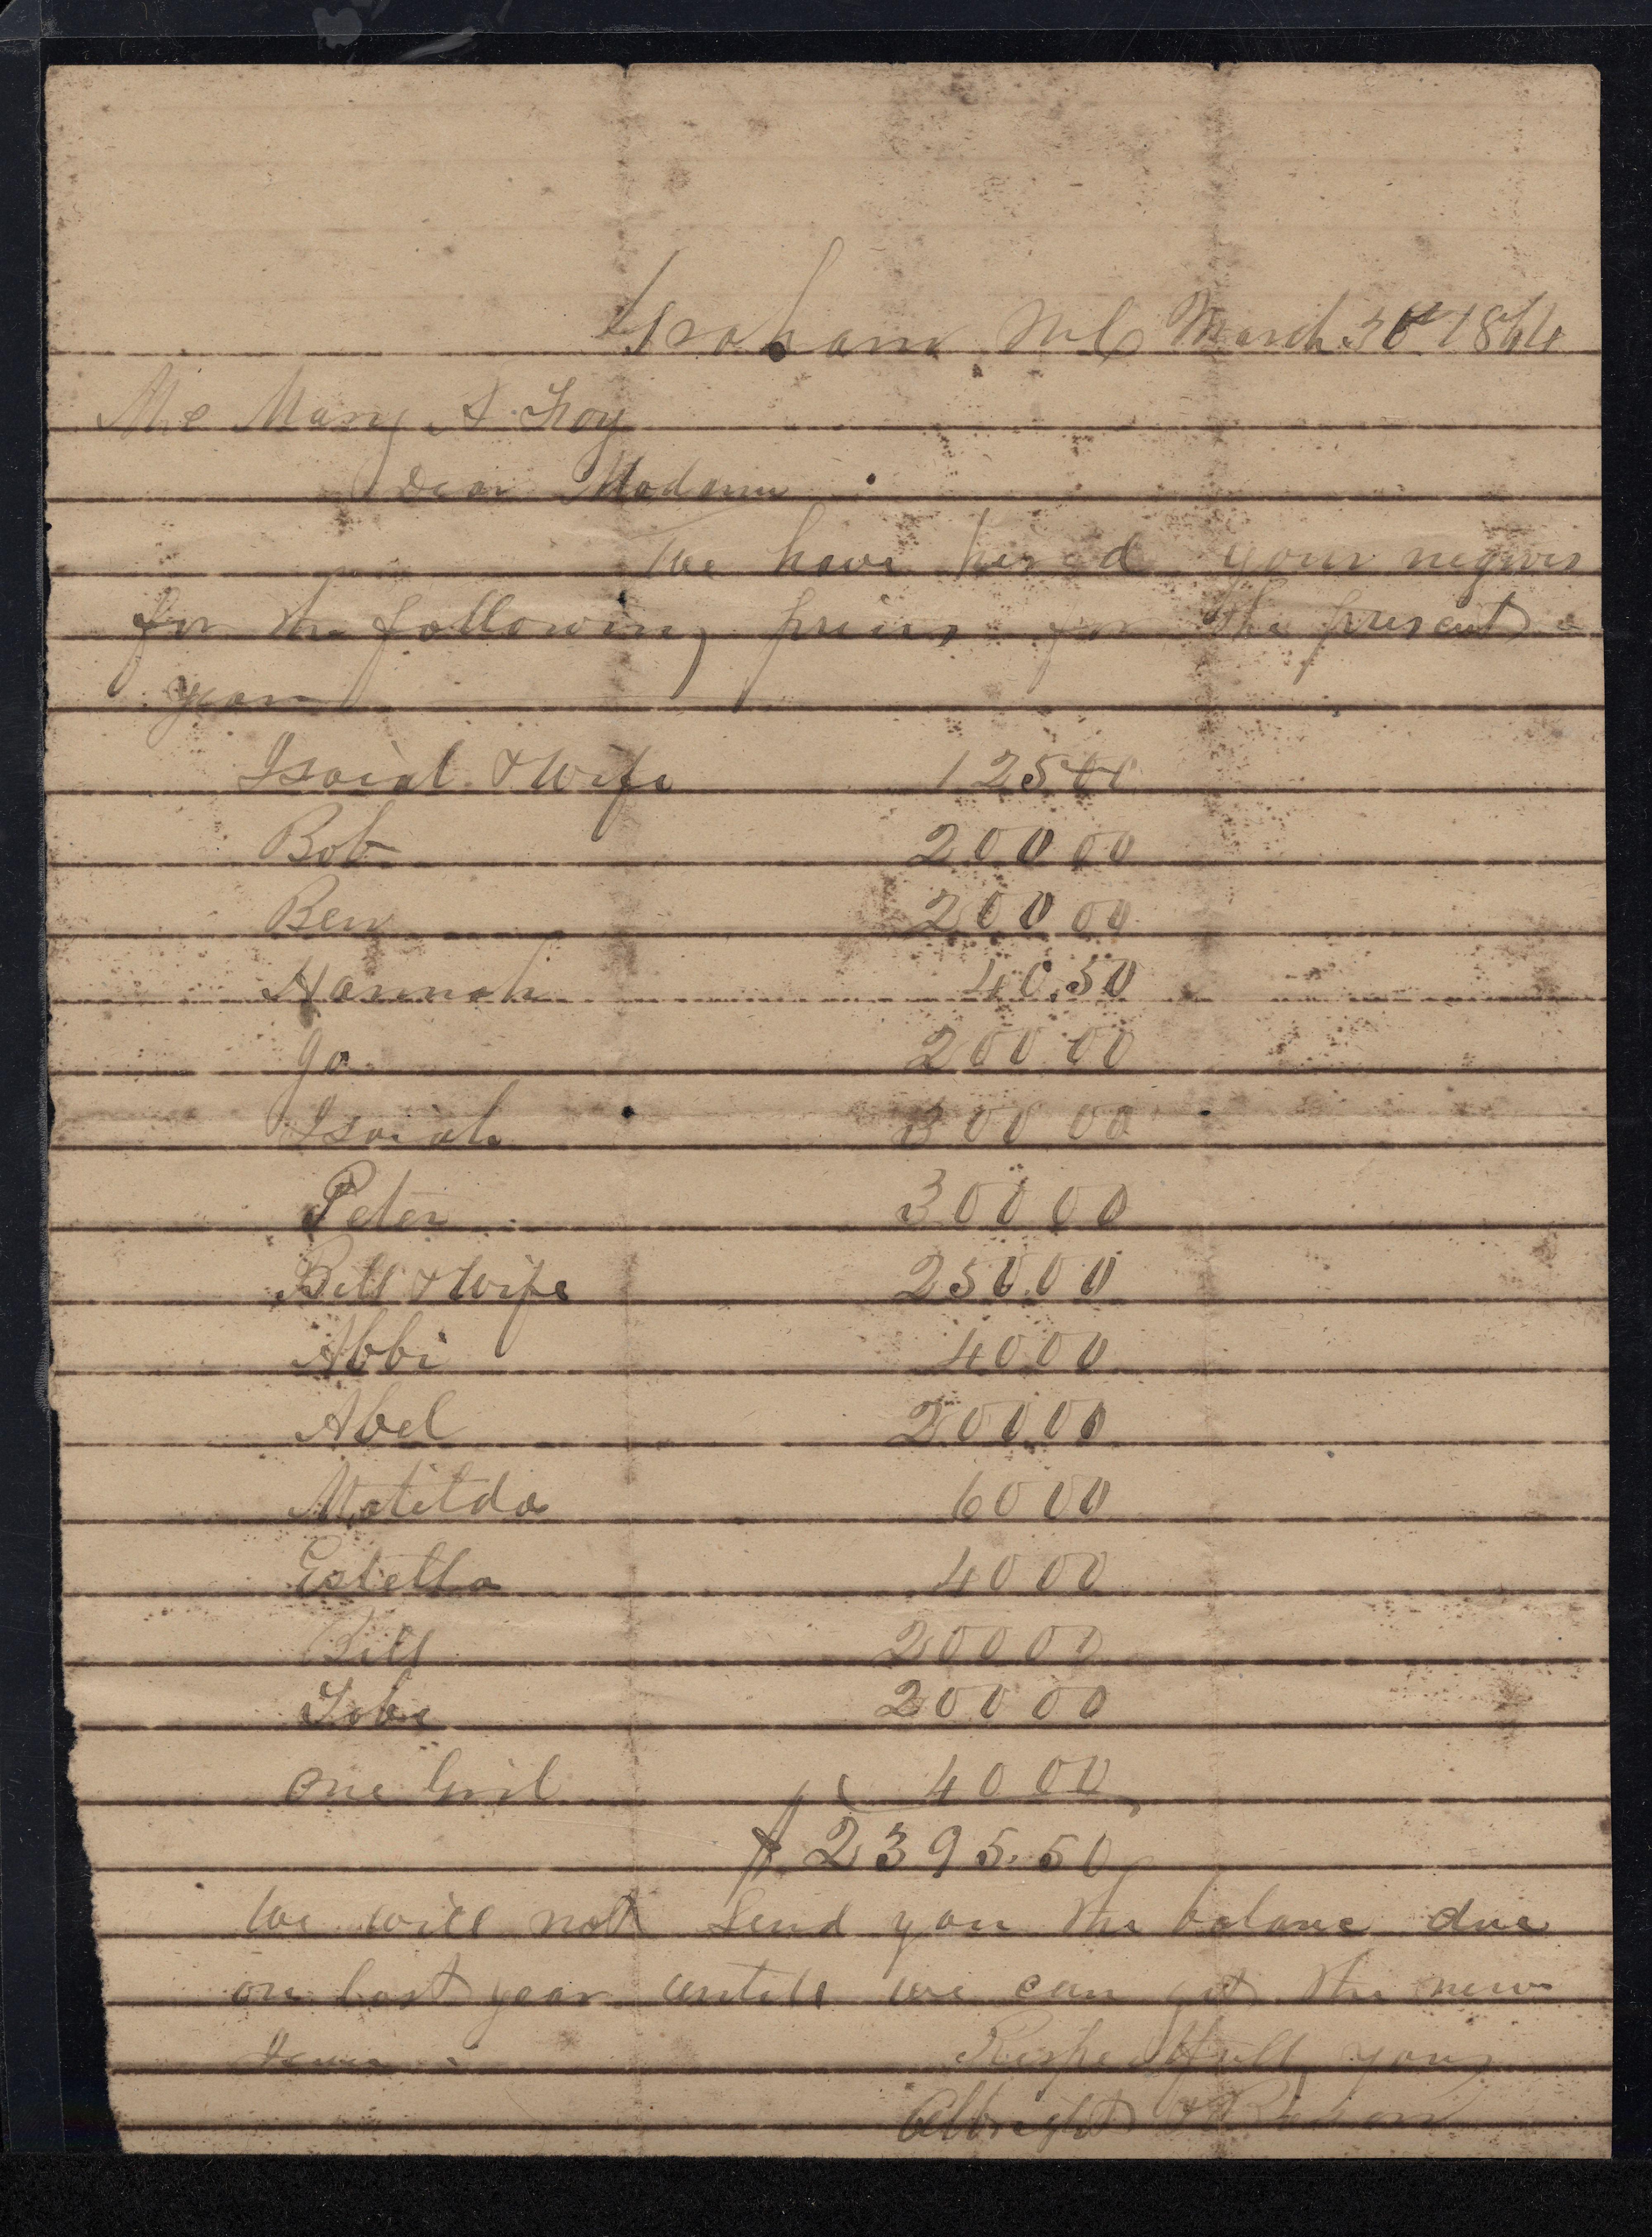 Graham N C March 30th 1864
Mrs Mary A Foy
Dear Madam
We have hired your negroes
for the following prices for the present
year
Isaiah & Wife 125 00
Bob 200 00
Ben 200 00
Hannah 40.50
Jo 200 00
Isaiah 300 00
Peter 300 00
Bill & Wife 250.00
Abbi 40 00
Abel 200 00
Matilda 60 00
Estella 40 00
Bill 200 00
Tobe 200 00
One Girl 40 00
$ 2395.50
We will not Send you the balanc due
on last year untill we can get the new
Respectfull yours
Albright &